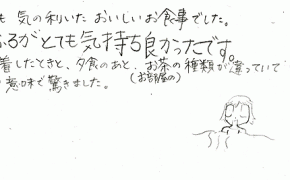 も 気の利いた おいしいお食事でした。
ふろがとても気持ち良かったです。
着したときと、夕食のあと、お茶の種類が違っていて
(お部屋の)
意味で驚きました。